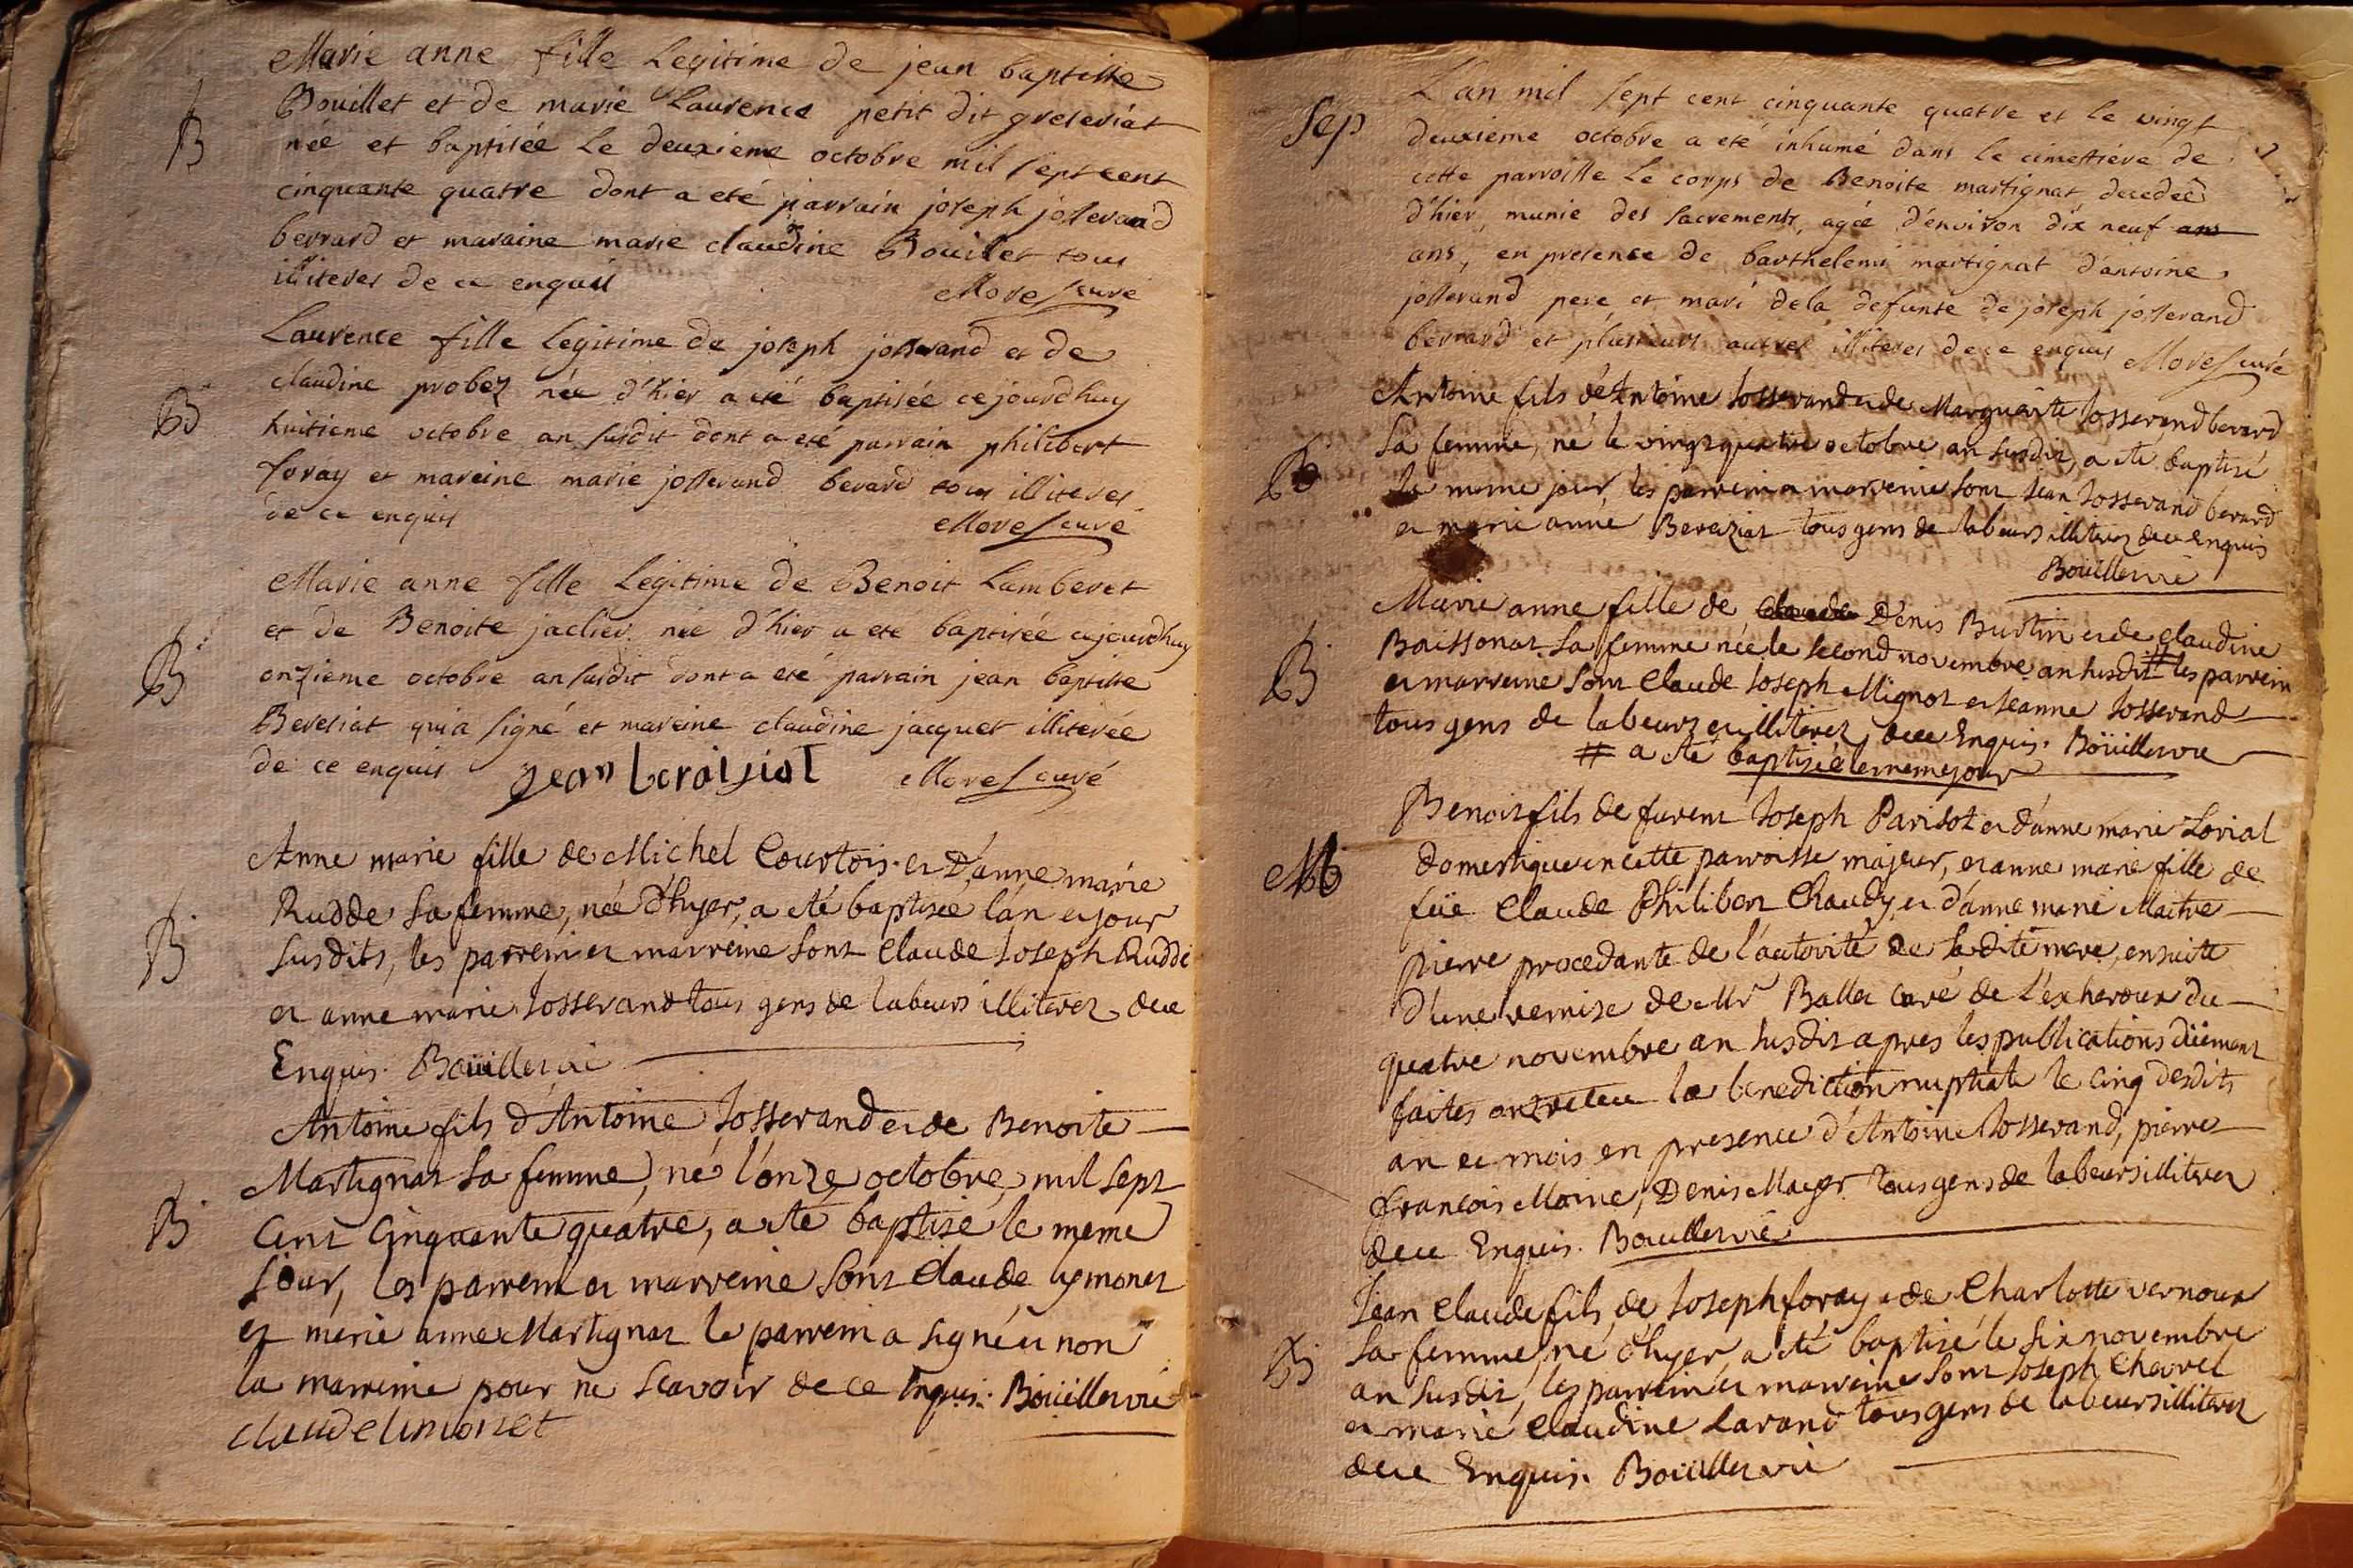 Marie anne fille Legitime de jean baptiste
B
Bouillet et de marie Laurence petit dit greseriát
née et baptisée Le deuxieme octobre mil sept cent
cinquante quatre dont a eté parrain joseph josserand
berrard et maraine marie claudine Bouilet tous
illiteres de ce enquis
Morel curé
Laurence fille Legitime de joseph josserand et de
B
claudine probez née d'hier a eté baptisée cejourdhuy
huitieme octobre an susdit dont a eté parrain philibert
foray et mareine marie josserand berard tous illiteres
de ce enquis
Morel curé
Marie anne fille Legitime de Benoit Lamberet
B
et de Benoite jaclier née d'hier a ete baptisée cejourdhuy
onzieme octobre an susdit dont a eté parrain jean baptiste
Bereriat qui a signé et mareine claudine jacquet illiterée
de ce enquis
jean beraisiat
Morel curé
Anne marie fille de Michel Courtois et D'anne marie
B
Rudde sa femme, née d'hyer, a eté baptisée l'an et jour
susdits, les parrein et marreine sont Claude Joseph Rudde
et anne marie Josserand tous gens de labeurs illiterez de ce
Enquis. Boüillet vic
Antoine fils d'Antoine Josserand et de Benoite
B
Martignat sa femme, né l'onze octobre, mil sept
Cent Cinquante quatre, a eté baptisé le meme
jour, les parrein et marreine sont Claude ymonet
et marie anne Martignat le parrein a signé et non
la marreine pour ne scavoir de ce Enquis. Boüillet vic
claude limonet
L'an mil sept cent cinquante quatre et le vingt
Sep
deuxieme octobre a eté inhumé dans le cimettiére de
cette parroisse Le corps de Benoite martignat, decedeé
d'hier, munie des sacrements, agée d'environ dix neuf ans
ans, en presence de barthelemi martignat d'antoine
josserand pere et mari de la defunte de joseph josserand
berrard et plusieurs autres illiteres de ce enquis
Morel curé
Antoine fils d'Antoine Josserand et de Marguerite Josserand berard
B
sa femme, né le vingt quatre octobre an susdit, a ete baptisé
le meme jour, les parrein et marreine sont Jean Josserand berard
et marie anne Bereziat tous gens de labeurs illiterez de ce enquis
Boüillet vic
Marie anne fille de claude Denis Burtin et de Claudine
B
Boissonat sa femme née le second novembre an susdit # les parrein
et marreine sont Claude Joseph Mignot et Jeanne Josserand
tous gens de labeurs et illiterez, de ce Enquis. Boüillet vic
# a eté baptisée le meme jour
Benoit fils de fu Joseph Parisot et d'anne marie Lorial
M
domestique en cette parroisse majeur, et anne marie fille de
feüe Claude Philibert Chaudy et d'anne marie Maitre
pierre procedante de l'autorité de sa dite mere, ensuite
d'une remise de Mr Ballet curé de L'escheroux du
quatre novembre an susdit apres les publications düement
faites ont receu la benediction nuptiale le cinq desdits
an et mois en presence d'Antoine Josserand, pierre
francois Moine, Denis Mayer tous gens de labeurs illiterez
de ce Enquis. Boüillet vic
Jean Claude fils de Joseph foray et de Charlotte vernoux
B
sa femme, né d'hyer, a eté baptisé le six novembre
an susdit, les parrein et marreine sont Joseph Chavrel
et marie Claudine Lavand tous gens de labeurs illiterez
de ce Enquis. Boüillet vic